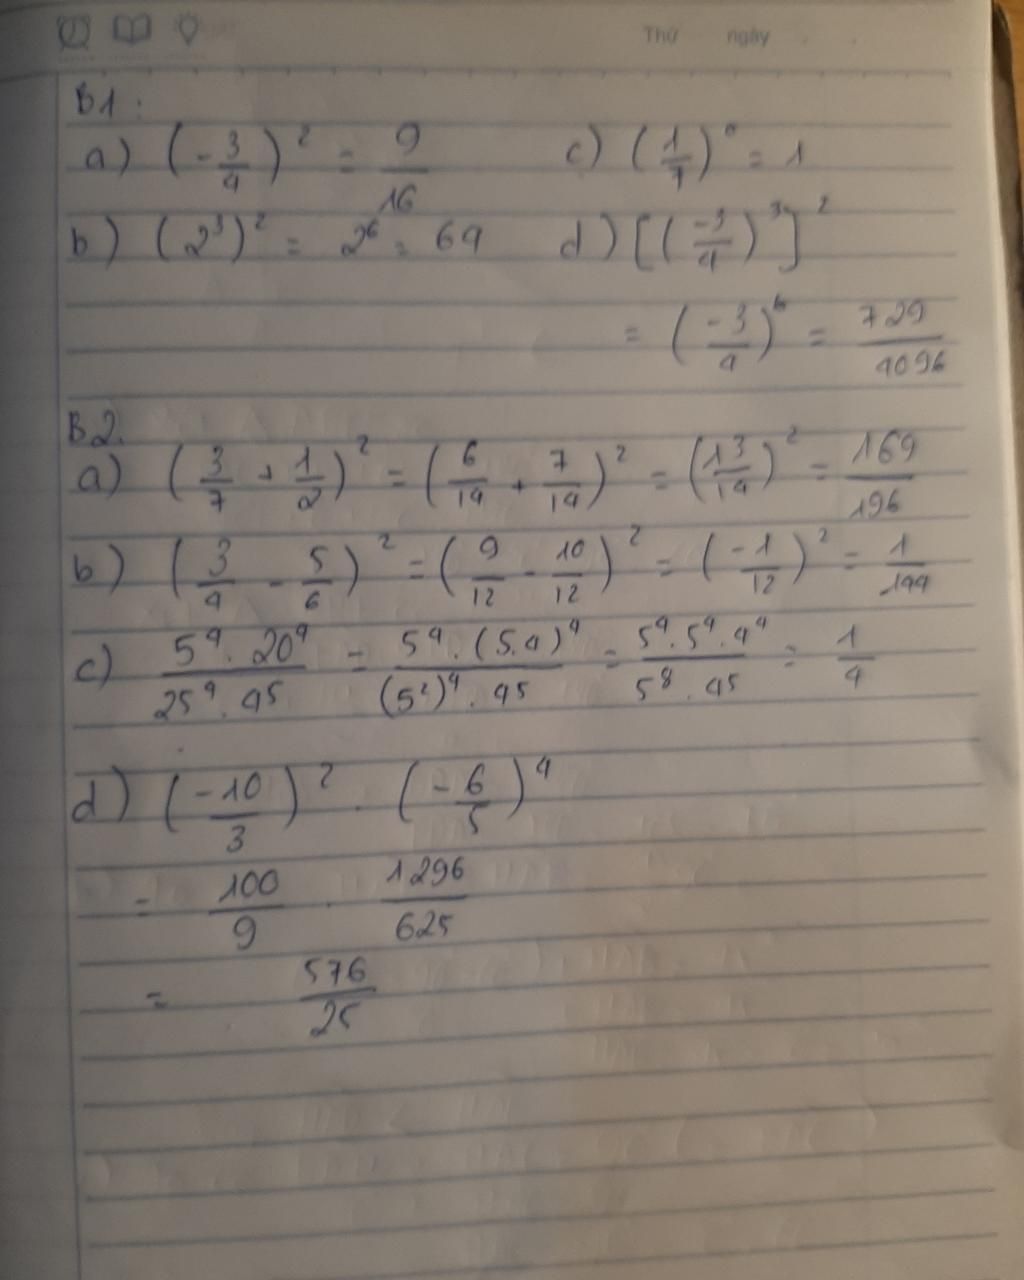 Thứ ngày
B1:
a) (-3/4)² = 9/16 c) (1/7)⁰ = 1
b) (2³)² = 2⁶ = 64 d) [(-3/4)³]²
= (-3/4)⁶ = 729/4096
B2.
a) (3/7 + 1/2)² = (6/14 + 7/14)² = (13/14)² = 169/196
b) (3/4 - 5/6)² = (9/12 - 10/12)² = (-1/12)² = 1/144
c) 5⁴.20⁴/25⁴.4⁵ = 5⁴.(5.4)⁴/(5²)⁴.4⁵ = 5⁴.5⁴.4⁴/5⁸.4⁵ = 1/4
d) (-10/3)² . (-6/5)⁴
= 100/9 . 1296/625
= 576/25